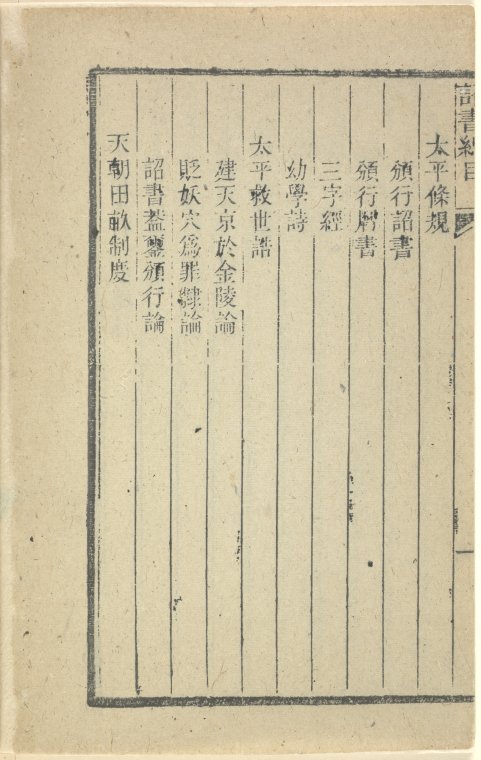 詔書總目
一
太平條規
頒行詔書
頒行曆書
三字經
幼學詩
太平救世誥
建天京於金陵論
貶妖穴爲罪隸論
詔書蓋璽頒行論
天朝田畝制度